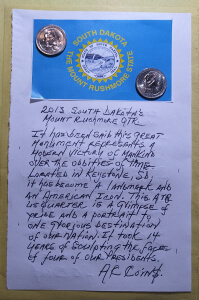 SOUTH DAKOTA
THE MOUNT RUSHMORE STATE
2013 SOUTH DAKOTA'S
MOUNT RUSHMORE QTR.
It has been said this great
Monument represents a
modern victory of mankind
over the oddities of time.
Located in Keystone, SD,
it has become a landmark and
an American Icon. This ATB
QUARTER is a glimpse of
pride and a portrait to
one glorious destination
of our nation. It took 14
years of sculpting the faces
of four of our Presidents.
AR Coins